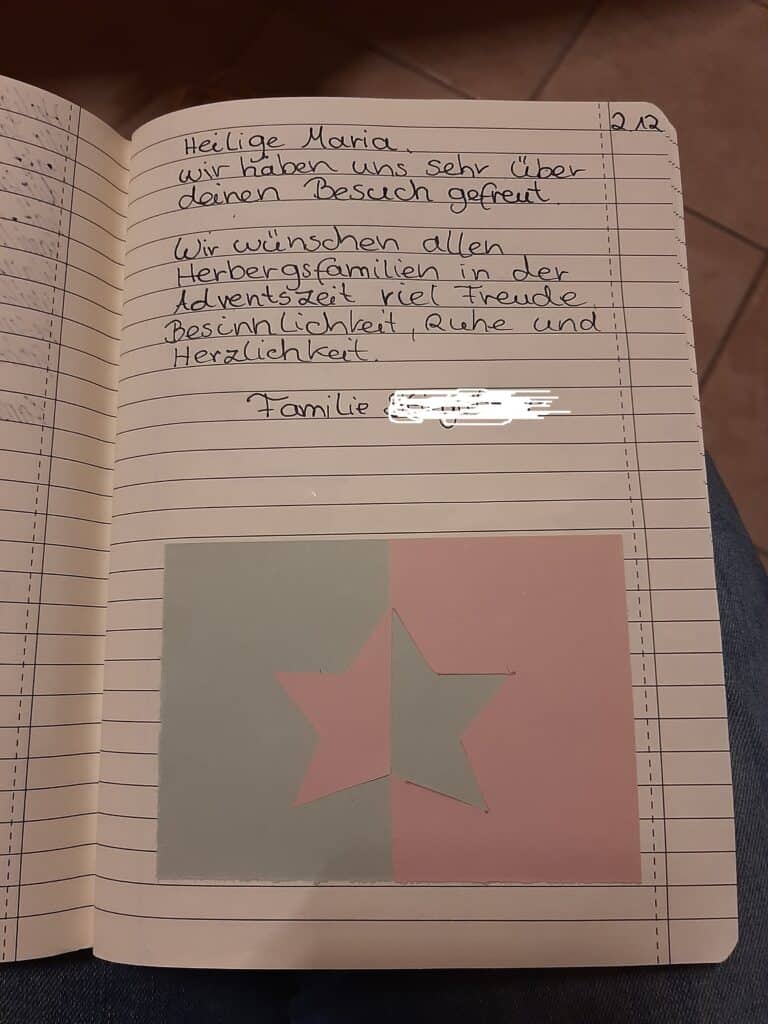 2.12
Heilige Maria,
wir haben uns sehr über
deinen Besuch gefreut.
Wir wünschen allen
Herbergsfamilien in der
Adventszeit viel Freude,
Besinnlichkeit, Ruhe und
Herzlichkeit.
Familie